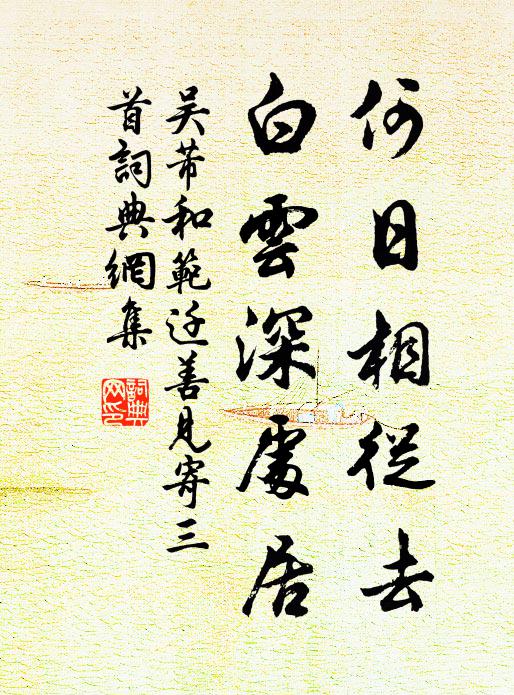 何日相從去
白雲深處居
吳芾和範迂善見寄三
首詞典網集
詞典
网印